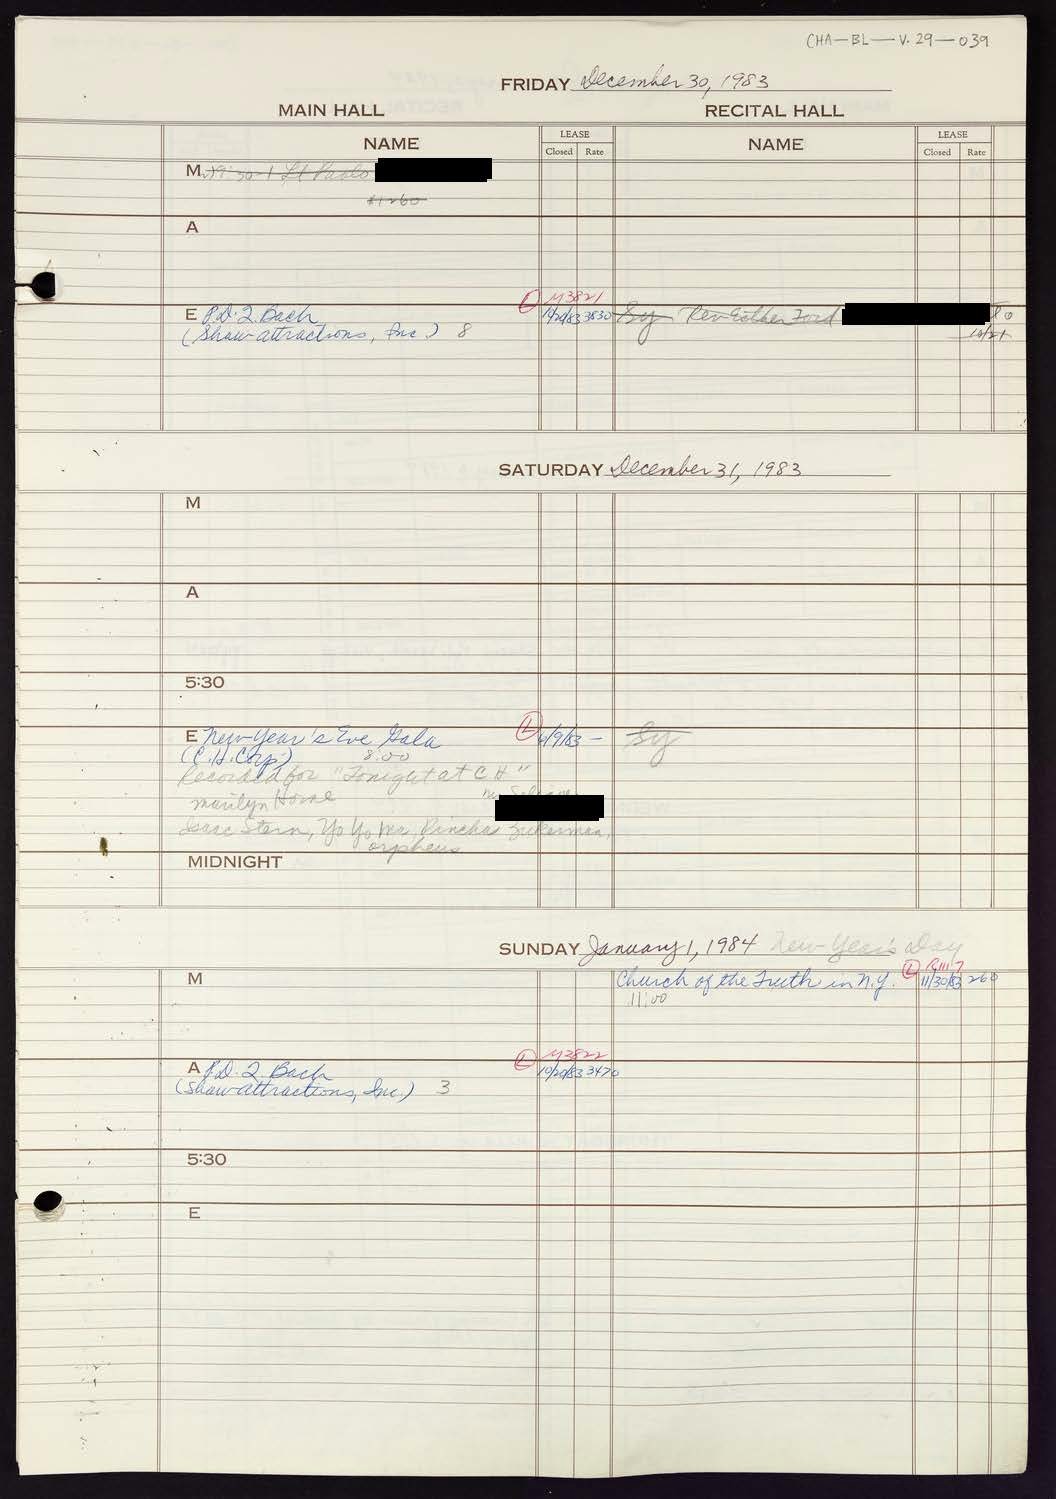 CHA-BL-V.29-039
FRIDAY December 30, 1983
MAIN HALL RECITAL HALL
NAME LEASE Closed Rate NAME LEASE Closed Rate
M 9:30-1 Pablo
$1260
A
M3821
E P.D.Q. Bach L 3530 Sy Rev Esther Ford
(Shaw attractions, Inc.) 8 10/21
SATURDAY December 31, 1983
M
A
5:30
E New Year's Eve Gala L 6/9/83 - Sy
(C.H. Corp) 8:00
Recorded for "Tonight at C H"
Marilyn Horne
Isaac Stern, Yo Yo Ma, Pinchas Zukerman,
orpheus
MIDNIGHT
SUNDAY January 1, 1984 New Year's Day
M Church of the Truth in N.Y. L 11/30/83 260
11:00
M3822
A P.D.Q. Bach L 10/20/83 3470
(Shaw attractions, Inc.) 3
5:30
E